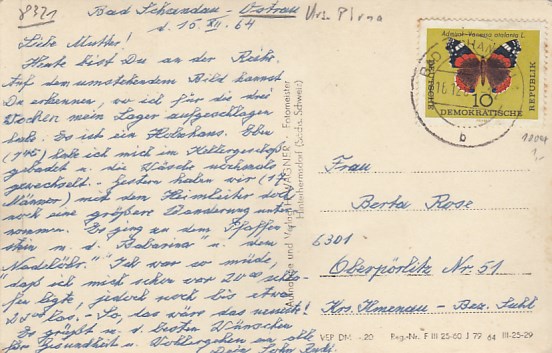 8321
Bad Schandau - Ostrau
Krs. Pirna
d. 15. XII. 64
Liebe Mutter!
Heute bist Du an der Reihe.
Auf dem umstehenden Bild kannst
Du erkennen, wo ich für die drei
Wochen mein Lager aufgeschlagen
hab. Es ist ein Holzhaus. Eben
habe ich mich im Kellergeschoß
gebadet u. die Wäsche nochmals
gewechselt. - Gestern haben wir (17
Männer) mit dem Heimleiter
noch eine größere Wanderung unter-
nommen. Es ging zu dem Pfaffen-
stein m. d. "Barbarine" u. dem
"Nadelöhr". Ich war so müde,
daß ich mich schon vor 20°° schla-
fen legte, jedoch noch bis etwa
los. - So, das wäre das neueste!
Es grüßt u. d. besten Wünschen
für Gesundheit u. Wohlergehen an alle
Dein Sohn
Aufnahme und Verlag H. WAGNER - Fotomeister
Hinterhermsdorf (Sächs. Schweiz)
Admiral - Vanessa atalanta L.
DEUTSCHE
10
DEMOKRATISCHE
REPUBLIK
BAD SCHANDAU
16.12.
b
Frau
Berta Rose
6301
Oberpörlitz Nr. 51
Krs. Ilmenau - Bez. Suhl
VEP DM -.20 Reg.-Nr. F III 25-60 J 79 64 III-25-29